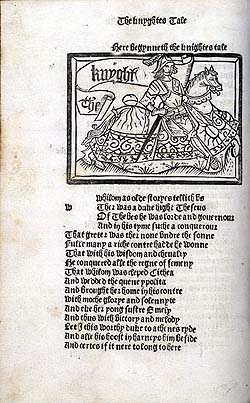 The knyghtes Tale
Here begynneth the knightes tale
knyght
the
whilom as olde storyes tellith us
w
Ther was a duke highte Theseus
Of Thebes he was lorde and gouernour
And in his tyme suche a conquerour
That gretter was ther none undre the sonne
Fulle many a riche contre hadde he wonne
That with his wisdom and cheualry
He conquered alle the regne of femeny
That whilom was cleped Cithea
And wedded the quene ypolita
And brought her home in his contre
with moche glorye and solennyte
And eke her yong sustre Emely
And thus with victory and melody
Lete I this worthy duke to athenes ryde
And alle his hoost in harneys him beside
And certes if it nere to long to here